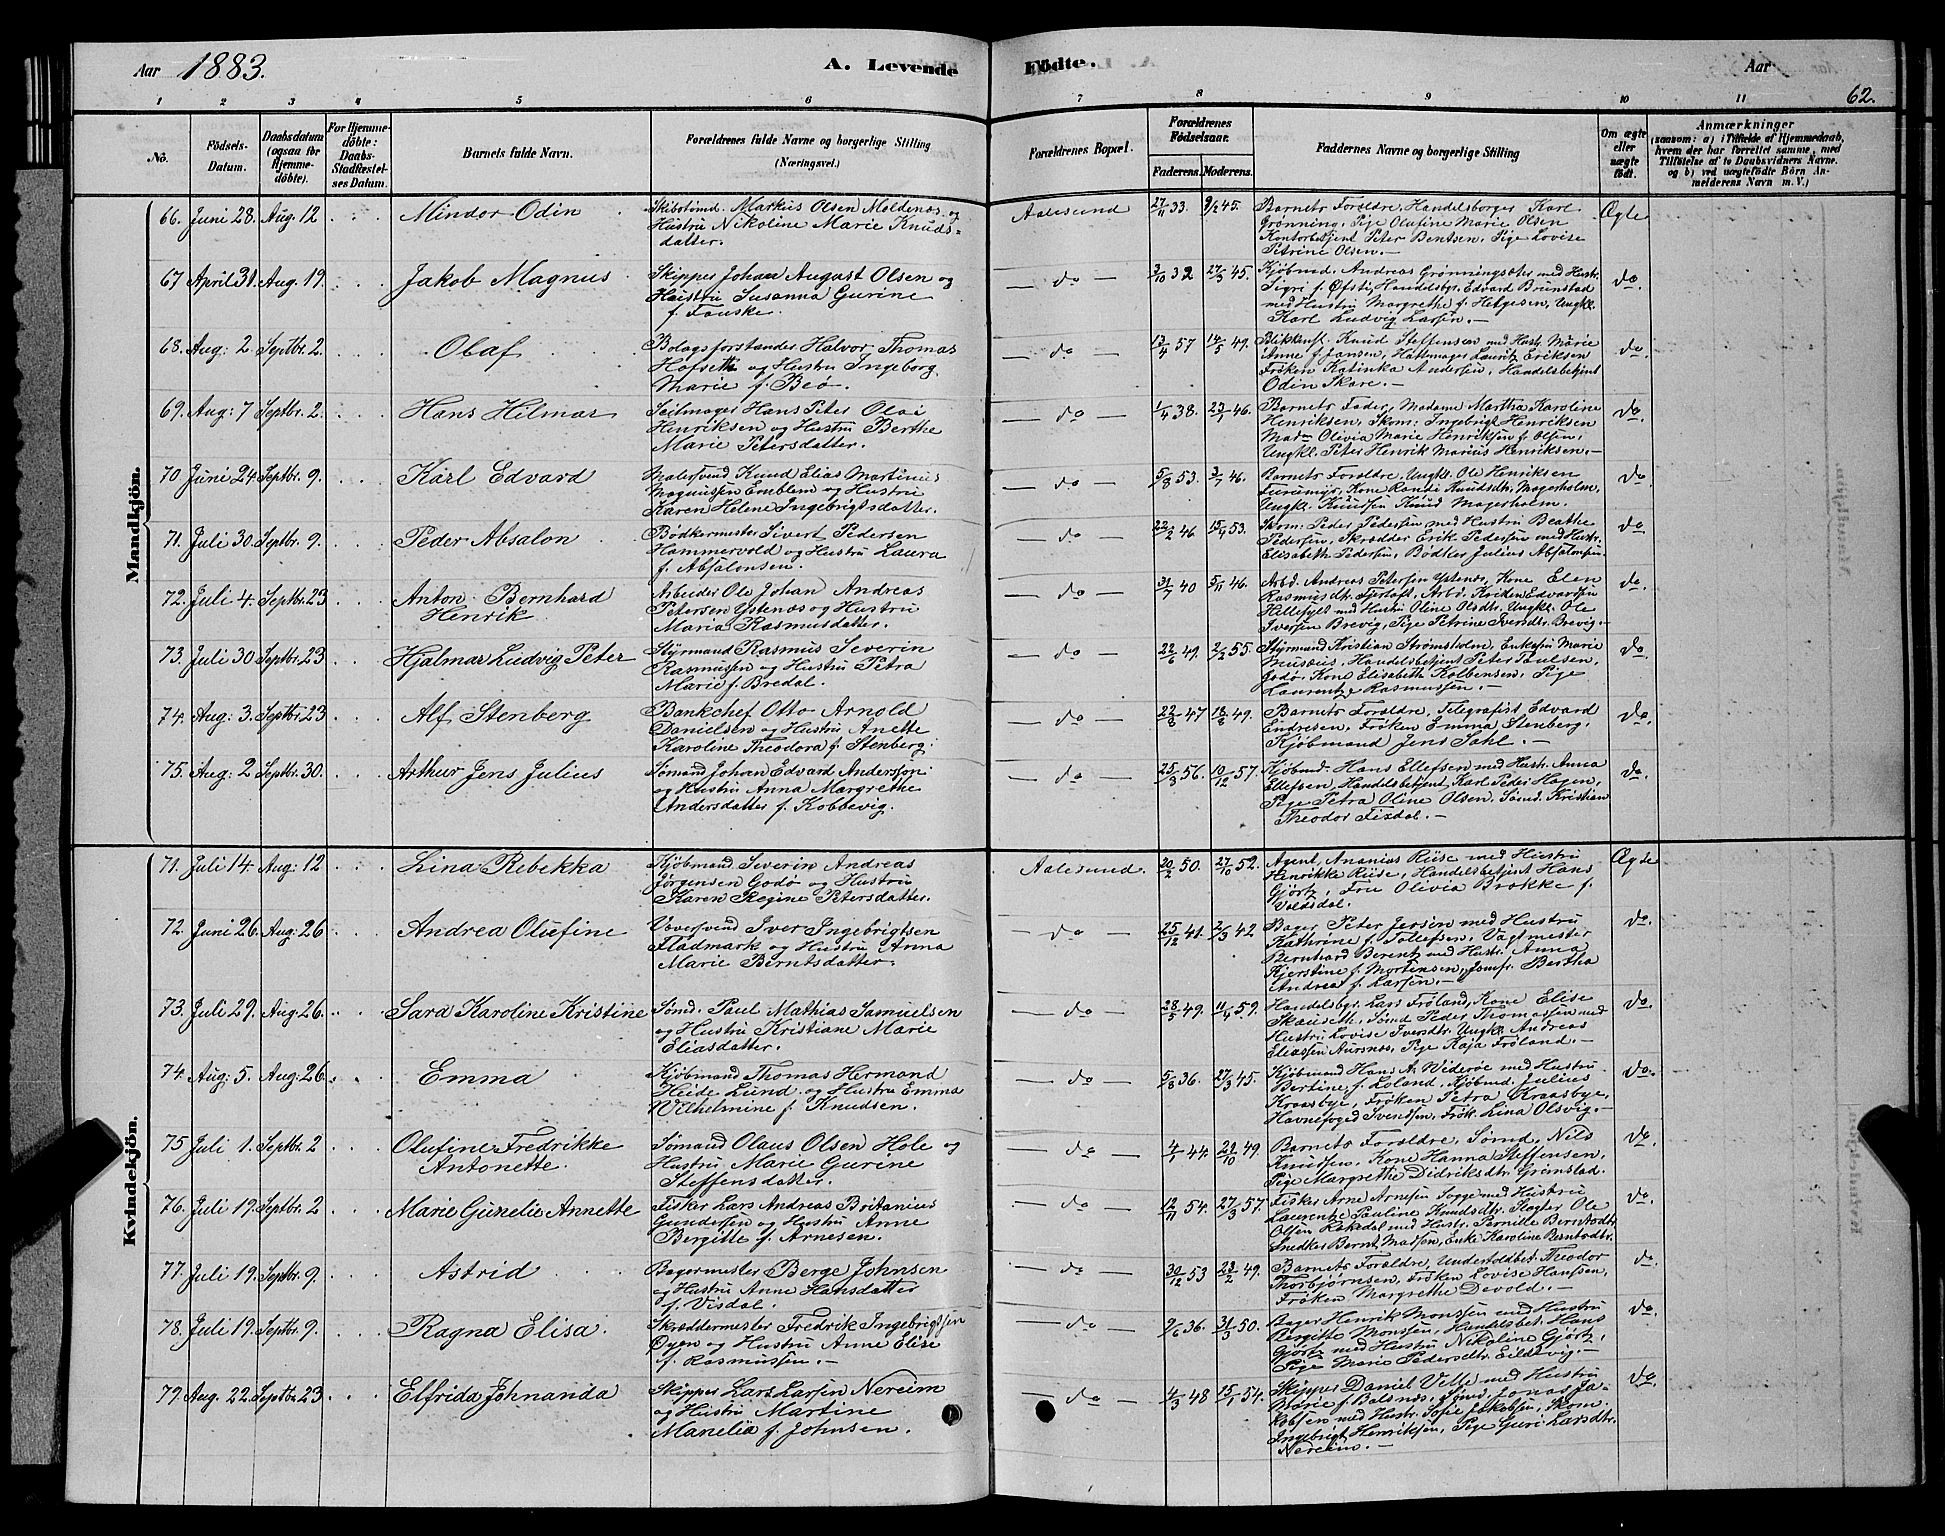 Aar 1883. A. Levende Födte. Aar 62.
1 2 3 4 5 6 7 8 9 10 11
No. Födsels-Datum. Daabsdatum (ogsaa for Hjemme-döbte). For Hjemme-döbte: Daabs-Stadfæstel-ses Datum. Barnets fulde Navn. Forældrenes fulde Navne og borgerlige Stilling (Næringsvei.) Forældrenes Bopæl. Forældrenes Födselsaar. Faderens. Moderens. Faddernes Navne og borgerlige Stilling Om ægte eller uægte födt. Anmærkninger
(saasom: a) i Tilfælde af Hjemmedaab, hvem der har forrettet samme, med Tilföielse af to Daabsvidners Navne. og b) ved uægtefödte Börn An-melderens Navn m. V.)
Mandkjön.
66. Juni 28. Aug. 12 Mindor Odin Skibstimd. Markus Olsen Moldenæs og Aalesund 27/11 33. 9/2 45. Barnets Forældre, Handelsborger Karl Ægte
Hustru Nikoline Marie Knuds= Grønning, Pige Olufine Marie Olsen
datter. Kontorbetjent Peter Bentsen, Pige Lovise
Petrine Olsen.
67 April 31. Aug. 19. Jakob Magnus Skipper Johan August Olsen og do 3/10 32 27/3 45. Kjøbmd. Andreas Grønningsæter med Hustr. do.
Hustru Susanna Gurine Sigri f. Øfsti, Handelsbgr. Edvard Brunstad
f. Fauske. med Hustru Margrethe f. Helgesen, Ungkl.
Karl Ludvig Larsen.
68. Aug: 2 Septbr. 2. Olaf Bolagsforstander Halvor Thomas do 13/4 57 14/5 49. Blikkensl. Knud Steffensen med Hustr. Marie do
Hofseth og Hustru Ingeborg Anne f. Jansen, Hattmager Lauritz Eriksen
Marie f. Beø. Frøken Katinka Andersen, Handelsbetjent
Odin Skare.
69. Aug: 7 Septbr. 2. Hans Hilmar Seilmager Hans Peter Olai do 1/4 38. 27/1 46. Barnets Fader, Madame Martha Karoline do.
Henriksen og Hustru Berthe Henriksen, Skom: Ingebrigt Henriksen
Marie Petersdatter. Mad. Olivia Marie Henriksen f. Olsen,
Ungkl. Peter Henrik Marius Henriksen.
70 Juni 24 Septbr. 9. Karl Edvard Malersvend Knud Elias Martinus do 5/8 53. 3/7 46. Barnets Forældre, Ungkl. Ole Henriksen do.
Magnussen Emblem og Hustru Furemyr, Kone Randi Knudsdtr. Magerholm,
Karen Helene Ingebrigtsdatter. Ungkl. Knudsen Knud Magerholm.
71. Juli 30. Septbr. 9. Peder Absalon Bødkermester Sivert Pedersen do 22/2 46 15/4 53. Skom. Peder Pedersen med Hustru Beathe do
Hammervold og Hustru Laura Pedersen, Skrædder Erik Pedersen med Hustr.
f. Absalonsen. Elisabeth Pedersen, Bødker Julius Absalonsen.
72. Juli 4. Septbr. 23 Anton Bernhard Arbeider Ole Johan Andreas do 31/7 40 5/11 46. Arbd. Andreas Petersen Ystenæs, Kone Elen do
Henrik Petersen Ystenæs og Hustru Rasmusdtr. Fjørtoft, Arbd. Kristen Edvardsen
Maria Rasmusdatter. Hellesylt med Hustru Oline Olsdtr. Ungkl. Ole
Iversen Brevig, Pige Petrine Iversdtr. Brevig.
73. Juli 30 Septbr. 23 Hjalmar Ludvig Peter Styrmand Rasmus Severin do 22/6 49. 2/2 55. Styrmand Kristian Strømsholm, Enkefru Marie do.
Rasmussen og Hustru Petra Musæus, Handelsbetjent Peter Paulsen,
Marie f. Bredal. Godø, Kone Elisabeth Kolbensen, Pige
Laurentze Rasmussen.
74. Aug: 3. Septbr. 23 Alf Stenberg Bankchef Otto Arnold do 22/8 47 18/8 49. Barnets Forældre, Telegrafist Edvard do.
Danielsen og Hustru Anette Endresen, Frøken Emma Stenberg,
Karoline Theodora f. Stenberg. Kjøbmand Jens Dahl.
75. Aug: 2 Septbr. 30. Arthur Jens Julius Sømand Johan Edvard Anderssøn do 25/8 56. 10/12 57. Kjøbmd. Hans Ellefsen med Hustr. Anna do.
og Hustru Anna Margrethe Ellefsen, Handelsbetjent Karl Peder Hagen,
Andersdatter f. Kobbevig. Pige Petra Oline Olsen, Sømd. Kristian
Theodor Fixdal.
Kvindekjön.
71. Juli 14. Aug: 12 Lina Rebekka Kjøbmand Severin Andreas Aalesund. 20/2 50. 27/10 52. Agent, Ananias Riise med Hustru Ægte
Jørgensen Godø og Hustru Henrikke Riise, Handelsbetjent Hans
Karen Regine Petersdatter. Gjørtz, Frue Olivia Brække f.
Voldsdal.
72. Juni 26. Aug: 26 Andrea Olufine Væversvend Iver Ingebrigtsen do 25/12 41. 2/3 42 Bager Peter Jersin med Hustru do.
Fladmark og Hustru Anna Kathrine f. Tollefsen, Vagtmester
Marie Berntsdatter. Bernhard Berentz med Hustr. Anna
Kjerstine f. Mortensen, Jomfr. Bertha
Andrea f. Larsen.
73. Juli 29. Aug. 26. Sara Karoline Kristine Sømd. Paul Mathias Samuelsen do 28/5 49. 11/4 59. Handelsbgr. Lars Frøland, Kone Elise do.
og Hustru Kristiane Marie Skauseth, Sømd Peder Thomassen med
Eliasdatter. Hustru Lovise Iversdtr. Ungkl. Andreas
Eliassen Aursnes, Pige Kaja Frøland.
74. Aug: 5. Aug: 26. Emma Kjøbmand Thomas Hermand do 5/8 36. 27/3 45. Kjøbmand Hans A. Widerøe med Hustru do.
Heide Lund og Hustru Emma Bertine f. Loland, Kjøbmd. Julius
Wilhelmine f. Knudsen. Kraasbye, Frøken Petra Kraasbye,
Havnefoged Svendsen, Frøk. Lina Olsvig.
75 Juli 1. Septbr. 2 Olufine Fredrikke Sømand Olaus Olsen Hole og do 4/1 44 29/10 49. Barnets Forældre, Sømd. Nils do.
Antonette. Hustru Marie Gurine Knudsen, Kone Hanna Steffensen,
Steffensdatter. Pige Margrethe Didriksdtr. Grimstad.
76. Juli 19. Septbr. 2 Marie Gurelie Annette Fisker Lars Andreas Britanius do 12/11 54. 27/3 57. Fisker Arne Arnesen Sogge med Hustru do.
Gundersen og Hustru Anne Laurentze Pauline Knudsdtr. Slagter Ole
Bergitte f. Arnesen. Olsen Rakedal med Hustr. Pernille Berntsdtr.
Snedker Bernt Madsen, Enke Karoline Berntsdtr.
77. Juli 19. Septbr. 9. Astrid Bagermester Berge Johnsen do 30/12 53 28/2 49. Barnets Forældre, Underfoldbet. Theodor do
og Hustru Anne Hansdatter Thorbjørnsen, Frøken Lovise Hanssen,
f. Visdal. Frøken Margrethe Devold.
78. Juli 19. Septbr. 9. Ragna Elisa. Skræddermester Fredrik Ingebrigtsen do 9/6 36. 31/3 50. Bager Henrik Monssen med Hustru do.
Øyen og Hustru Anne Elise Bergitte Monssen, Handelsbet. Hans
f. Rasmussen. Gjørtz med Hustru Nikoline Gjørtz,
Pige Marie Pedersdtr. Eildevig.
79. Aug. 22. Septbr. 23 Elfrida Johnanda Skipper Lars Larsen Nereim do 4/3 48 15/1 54. Skipper Daniel Velle med Hustru do.
og Hustru Martine Marie f. Balsnes, Sømd. Jonas Ja=
Manelia f. Johnsen. kobsen med Hustr. Sofie Jakobsen, Skom.
Ingebrigt Henriksen, Pige Guri Larsdtr.
Nereim.